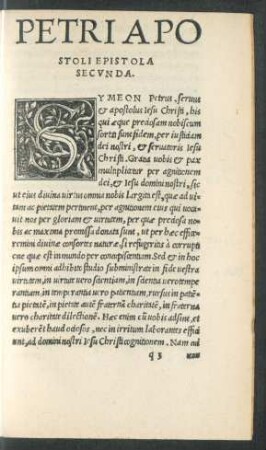 PETRI APO
STOLI EPISTOLA
SECVNDA.
SYMEON Petrus, seruus
& apostolus Iesu Christi, his
qui æque preciosam nobiscum
sortiti sunt fidem, per iustitiam
dei nostri, & seruatoris Iesu
Christi. Gratia uobis & pax
multiplicetur per agnitionem
dei, & Iesu domini nostri, sic
ut eius diuina uirtus omnia nobis largita est, quæ ad ui
tam ac pietatem pertinent, per agnitionem eius qui uoca
uit nos per gloriam & uirtutem, per quæ preciosa no
bis ac maxima promissa donata sunt, ut per hæc effice
remini diuinæ consortes naturæ, si refugeritis à corrupti
one quæ est in mundo per concupiscentiam. Sed & in hoc
ipsum omni adhibito studio subministrate in fide uestra
uirtutem, in uirtute uero scientiam, in scientia uero tempe
rantiam, in temperantia uero patientiam, rursus in patien
tia pietatē, in pietate autē fraternā charitatē, in fraterna
uero charitate dilectionē. Hæc enim cū uobis adsint, et
exuberēt haud ociosos, nec in irritum laborantes effici
unt, ad domini nostri Iesu Christi cognitionem. Nam ad
q 3